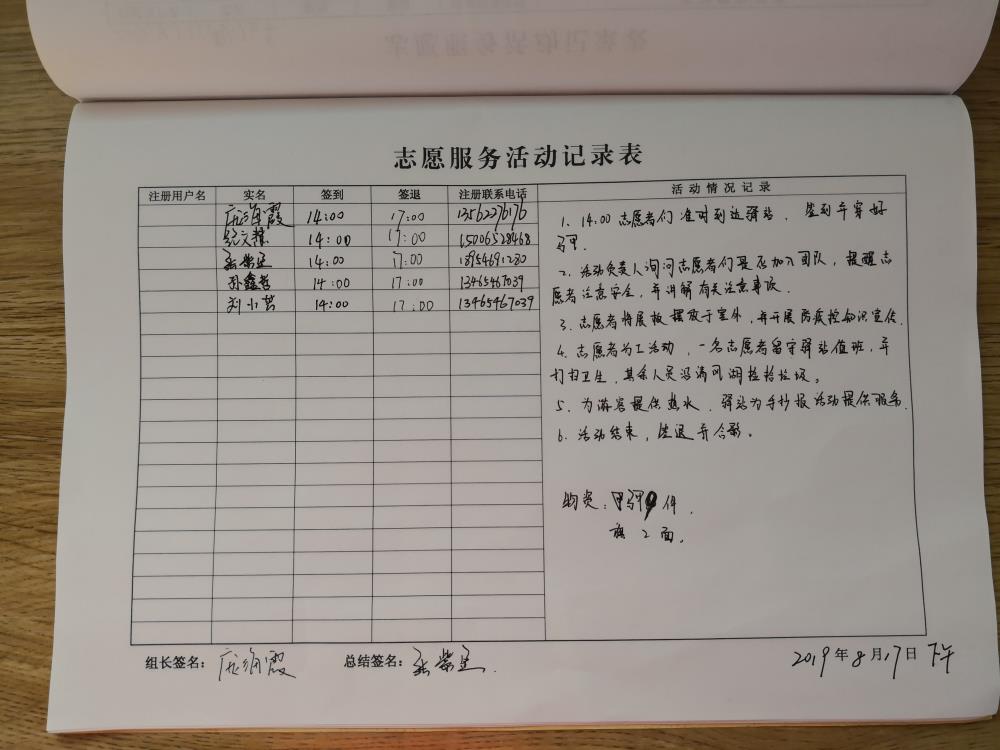 志愿服务活动记录表
注册用户名 实名 签到 签退 注册联系电话 活动情况记录
14:00 17:00 13562276176
14:00 17:00 15006528468
14:00 17:00 18954691280
孙鑫 14:00 17:00 13465467039
刘小芸 14:00 17:00 13465467039
1. 14:00 志愿者们准时到达驿站,签到并穿好
马甲.
2. 活动负责人询问志愿者们是否加入团队,提醒志
愿者注意安全,并讲解有关注意事项.
3. 志愿者将展板摆放于室外,并开展防疾控知识宣传.
4. 志愿者分工活动,一名志愿者留守驿站值班,并
打扫卫生,其余人员沿清风湖捡拾垃圾。
5. 为游客提供热水.驿站为手抄报活动提供服务.
6. 活动结束,签退并合影.
物资:马甲9件.
旗2面.
组长签名: 总结签名:
2019年8月17日 下午